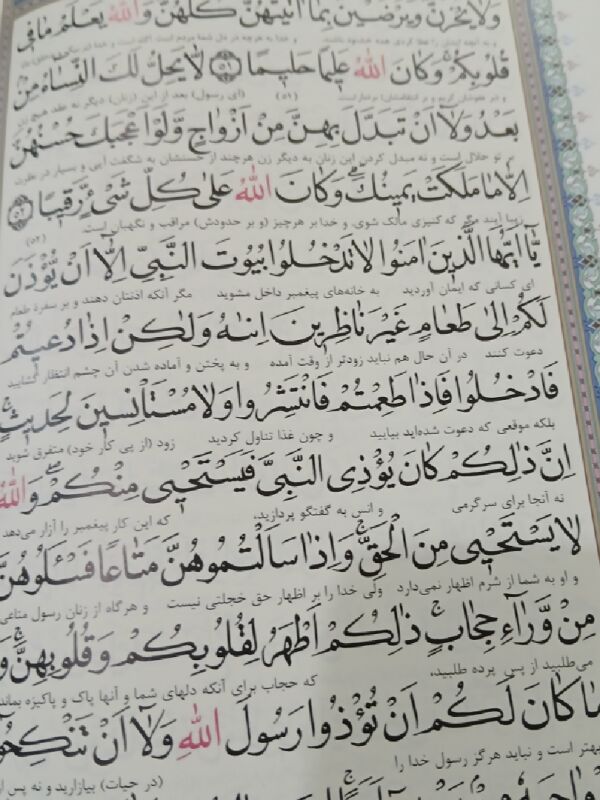 وَلَا يَحْزَنَّ وَيَرْضَيْنَ بِمَا اٰتَيْتَهُنَّ كُلُّهُنَّ وَاللّٰهُ يَعْلَمُ مَا فِي
قُلُوبِكُمْ وَكَانَ اللّٰهُ عَلِيمًا حَلِيمًا ﴿٥١﴾ لَا يَحِلُّ لَكَ النِّسَاءُ مِنْ
(ای رسول) بعد از این (زنان) دیگر نه عقد هیچ زن
بَعْدُ وَلَا اَنْ تَبَدَّلَ بِهِنَّ مِنْ اَزْوَاجٍ وَلَوْ اَعْجَبَكَ حُسْنُهُنَّ
بر تو حلال است و نه مبدل کردن این زنان به دیگر زن هرچند از حسنشان به شگفت آیی و بسیار در نظرت
اِلَّا مَا مَلَكَتْ يَمِينُكَ وَكَانَ اللّٰهُ عَلٰى كُلِّ شَيْءٍ رَقِيبًا ﴿٥٢﴾
زیبا آیند مگر که کنیزی مالک شوی. و خدا بر هرچیز (و بر حدودش) مراقب و نگهبان است. (۵۲)
يَا اَيُّهَا الَّذِينَ اٰمَنُوا لَا تَدْخُلُوا بُيُوتَ النَّبِيِّ اِلَّا اَنْ يُؤْذَنَ
ای کسانی که ایمان آوردید به خانه‌های پیغمبر داخل مشوید مگر آنکه اذنتان دهند و بر سفرهٔ طعام
لَكُمْ اِلٰى طَعَامٍ غَيْرَ نَاظِرِينَ اِنٰيهُ وَلٰكِنْ اِذَا دُعِيتُمْ
دعوت کنند در آن حال هم نباید زودتر از وقت آمده و به پختن و آماده شدن آن چشم انتظار گشایید
فَادْخُلُوا فَاِذَا طَعِمْتُمْ فَانْتَشِرُوا وَلَا مُسْتَاْنِسِينَ لِحَدِيثٍ
بلکه موقعی که دعوت شده‌اید بیایید و چون غذا تناول کردید زود (از پی کار خود) متفرق شوید
اِنَّ ذٰلِكُمْ كَانَ يُؤْذِي النَّبِيَّ فَيَسْتَحْيِي مِنْكُمْ وَاللّٰهُ
نه آنجا برای سرگرمی و انس به گفتگو پردازید، که این کار پیغمبر را آزار می‌دهد
لَا يَسْتَحْيِي مِنَ الْحَقِّ وَاِذَا سَاَلْتُمُوهُنَّ مَتَاعًا فَسْـَٔلُوهُنَّ
و او به شما از شرم اظهار نمی‌دارد ولی خدا را بر اظهار حق خجلتی نیست و هرگاه از زنان رسول متاعی
مِنْ وَرَاءِ حِجَابٍ ذٰلِكُمْ اَطْهَرُ لِقُلُوبِكُمْ وَقُلُوبِهِنَّ وَ
می‌طلبید از پس پرده طلبید، که حجاب برای آنکه دلهای شما و آنها پاک و پاکیزه بماند
مَا كَانَ لَكُمْ اَنْ تُؤْذُوا رَسُولَ اللّٰهِ وَلَا اَنْ تَنْكِحُوا
بهتر است و نباید هرگز رسول خدا را (در حیات) بیازارید و نه پس از